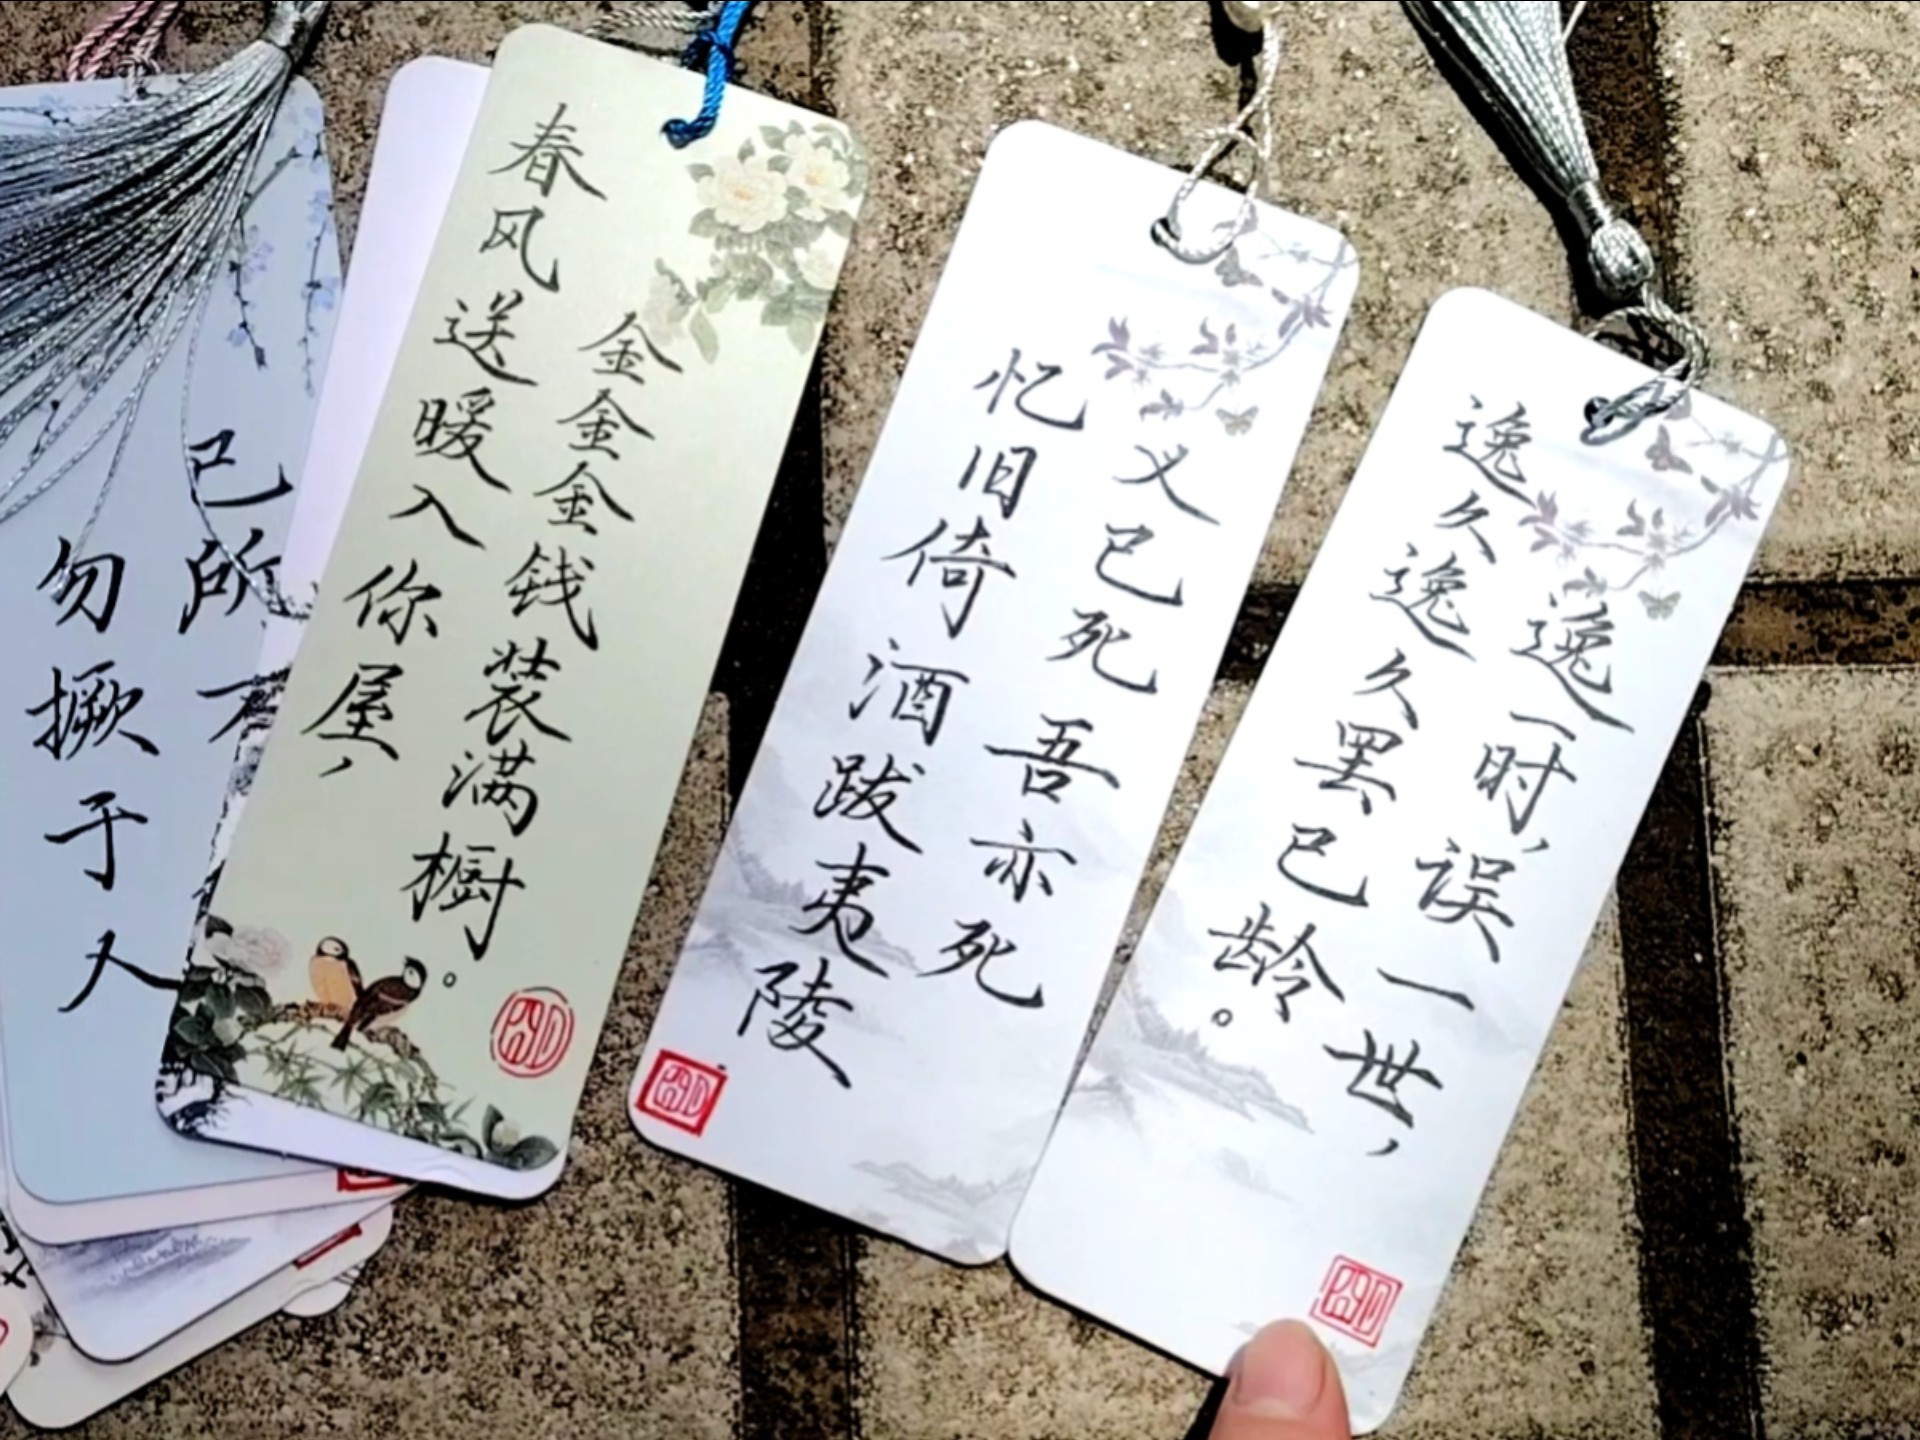 己所不
勿撅于人
春风送暖入你屋，
金金金钱装满橱。
义已死吾亦死
忆旧倚酒跋夷陵
逸一时，误一世，
逸久逸久罢已龄。